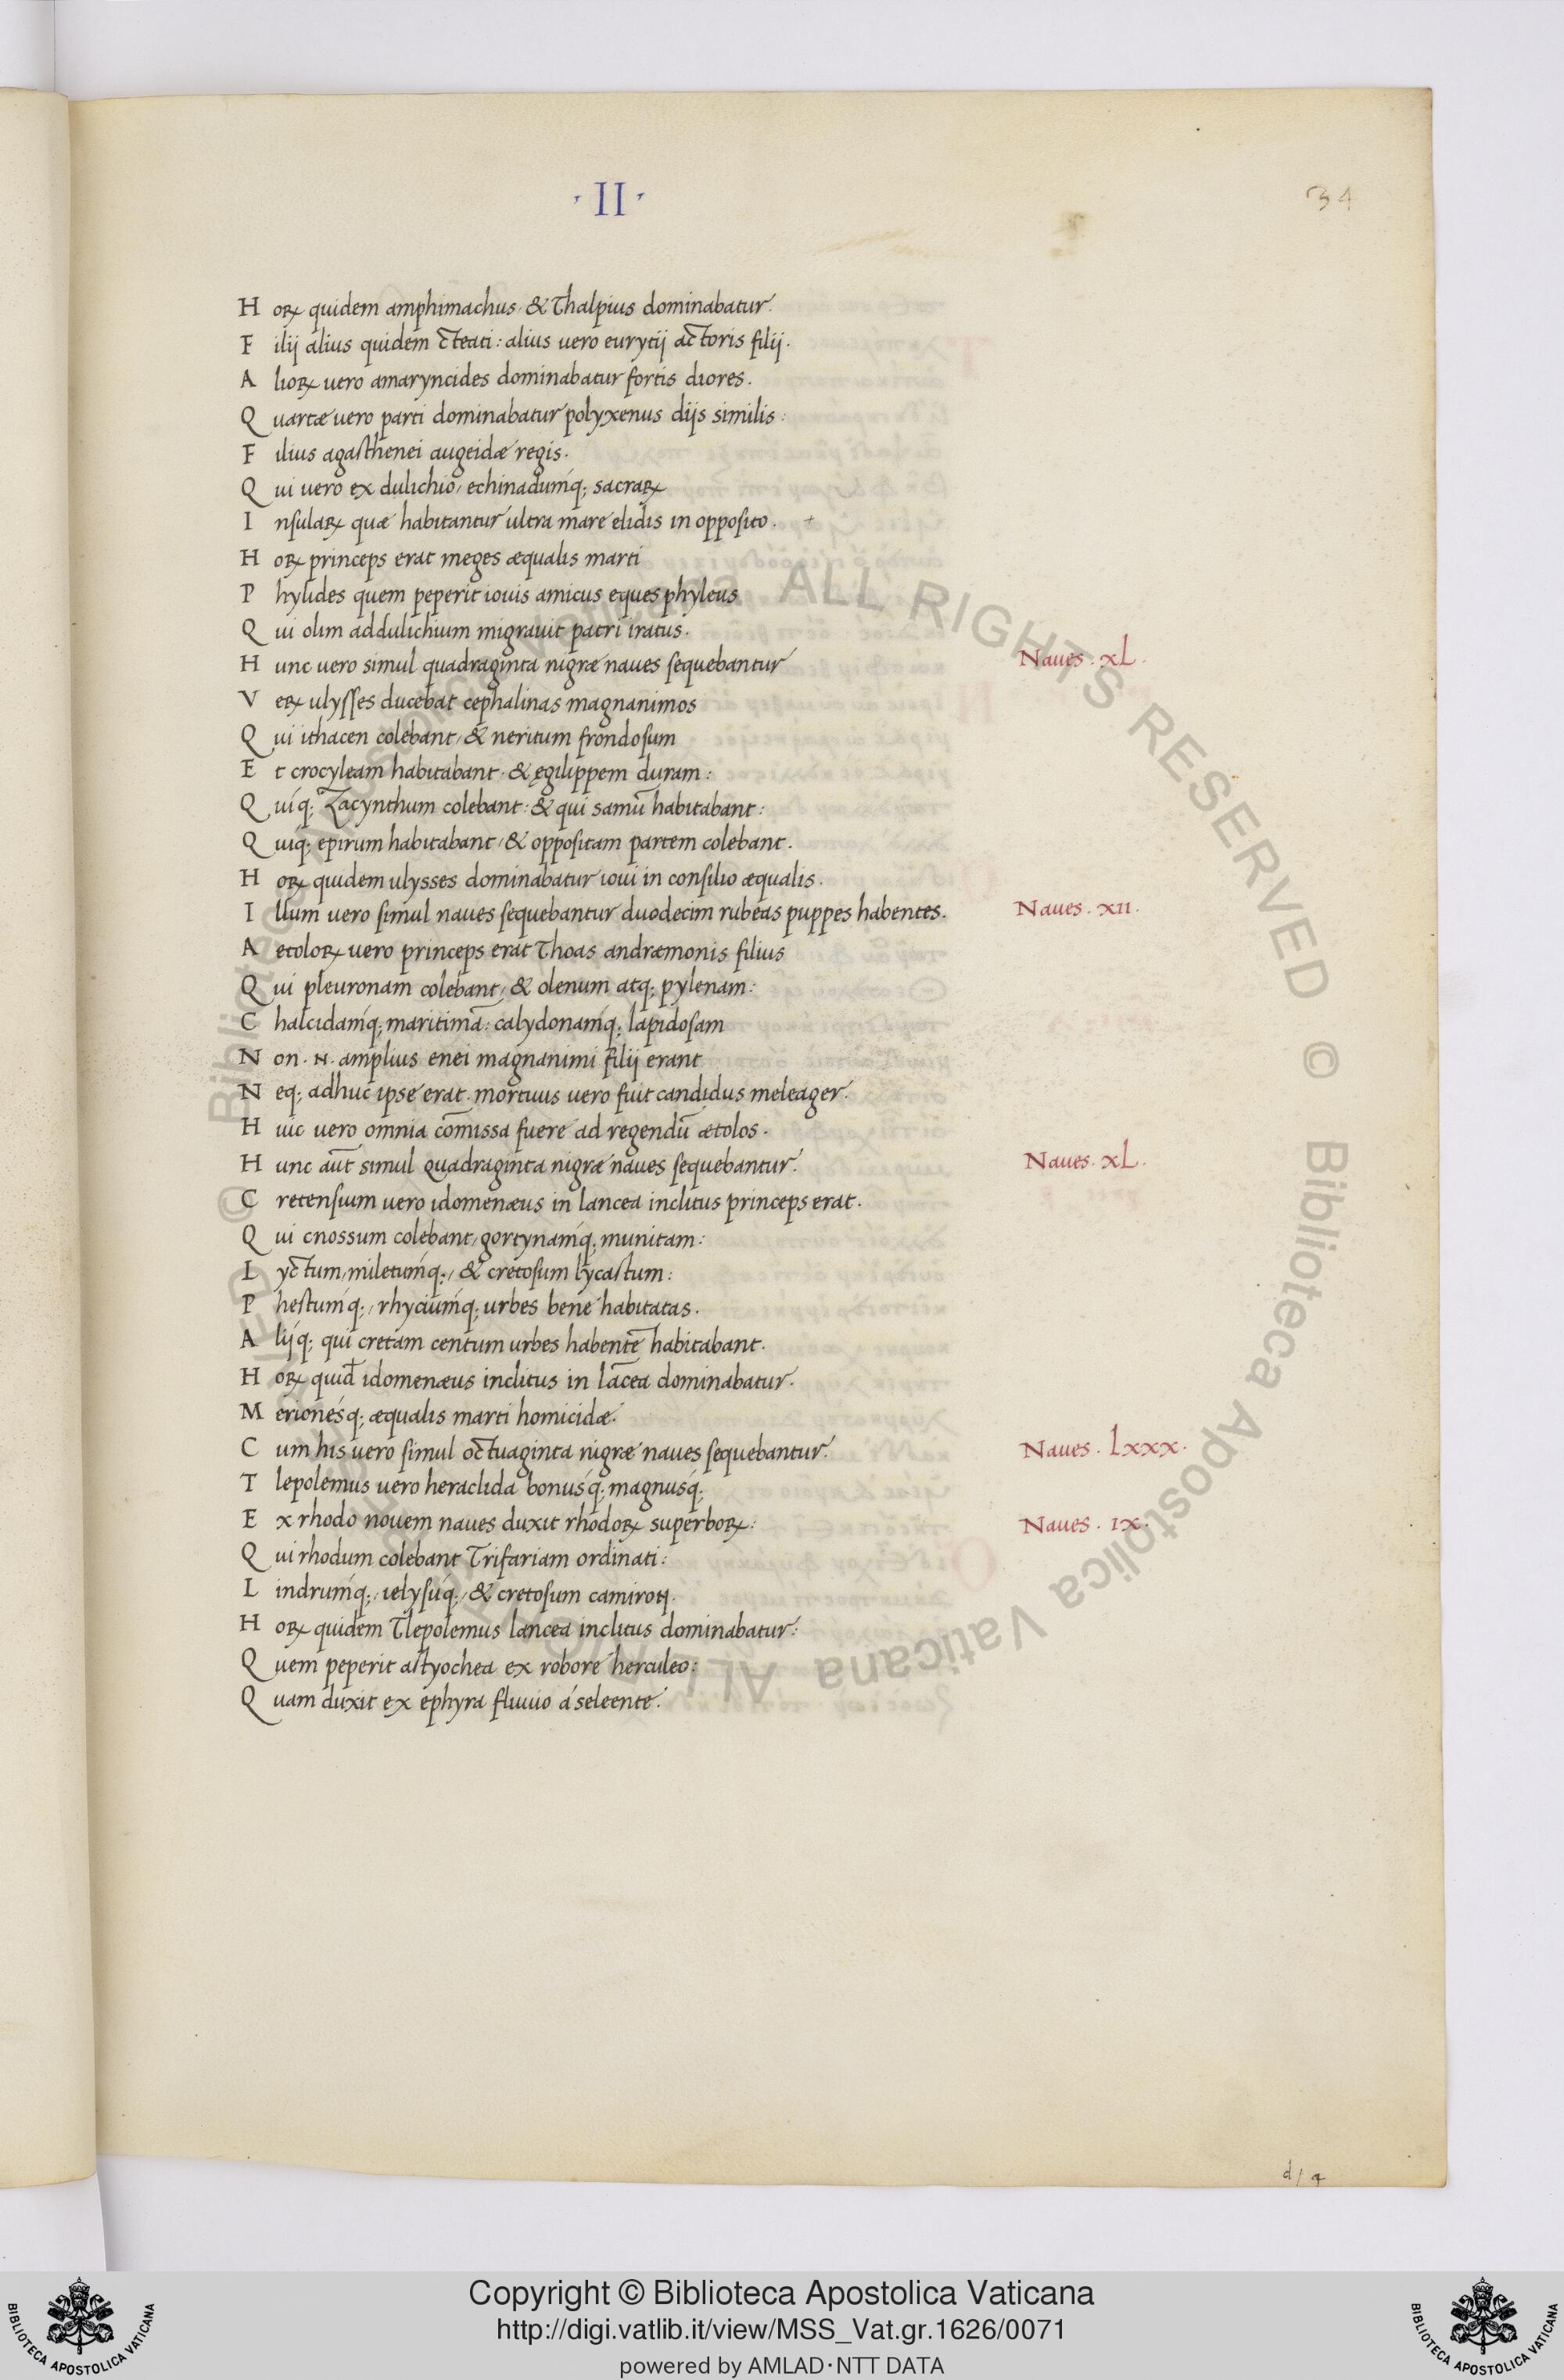 · II ·
34
Horꝝ quidem amphimachus / & Thalpius dominabatur.
Filij alius quidem cteati : alius uero eurytij actoris filij .
Aliorꝝ uero amaryncides dominabatur fortis diores .
Quartæ uero parti dominabatur polyxenus dijs similis :
Filius agasthenei augeidæ regis .
Qui uero ex dulichio / echinadumq́; sacrarꝝ
Insularꝝ quæ habitantur ultra mare elidis in opposito . +
Horꝝ princeps erat meges æqualis marti
Phylides quem peperit iouis amicus eques phyleus
Qui olim ad dulichium migrauit patri iratus .
Hunc uero simul quadraginta nigræ naues sequebantur
Naues . xL .
Verꝝ ulysses ducebat cephalinas magnanimos
Qui ithacen colebant / & neritum frondosum
Et crocyleam habitabant · & ęgilippem duram :
Quiq́; Zacynthum colebant : & qui samū habitabant :
Quiq́; epirum habitabant / & oppositam partem colebant .
Horꝝ quidem ulysses dominabatur ioui in consilio æqualis .
Illum uero simul naues sequebantur duodecim rubeas puppes habentes .
Naues . xii .
Aetolorꝝ uero princeps erat Thoas andræmonis filius
Qui pleuronam colebant / & olenum atq; pylenam :
Chalcidamq́; maritimā : calydonamq́; lapidosam
Non . N . amplius enei magnanimi filij erant
Neq; adhuc ipse erat . mortuus uero fuit candidus meleager .
Huic uero omnia cōmissa fuere ad regendū ætolos .
Hunc aūt simul quadraginta nigræ naues sequebantur .
Naues . xL .
Cretensium uero idomenæus in lancea inclitus princeps erat .
Qui cnossum colebant / gortynamq́; munitam :
Lyctum / miletumq́; / & cretosum lycastum :
Phestumq́; / rhyciumq́; urbes bene habitatas .
Alijq́; qui cretam centum urbes habentē habitabant .
Horꝝ quid̄ idomenæus inclitus in lācea dominabatur .
Merionesq́; æqualis marti homicidæ .
Cum his uero simul octuaginta nigræ naues sequebantur .
Naues . Lxxx .
Tlepolemus uero heraclida bonusq́; magnusq́;
Ex rhodo nouem naues duxit rhodorꝝ superborꝝ :
Naues . ix .
Qui rhodum colebant Trifariam ordinati :
Lindrumq́; / ielysuq́; / & cretosum
Horꝝ quidem Tlepolemus lancea inclitus dominabatur :
Quem peperit astyochea ex robore herculeo :
Quam duxit ex ephyra fluuio á seleente .
d / 4
© Biblioteca Apostolica Vaticana ALL RIGHTS RESERVED © Biblioteca Apostolica Vaticana ALL RIGHTS RESERVED
Copyright © Biblioteca Apostolica Vaticana
http://digi.vatlib.it/view/MSS_Vat.gr.1626/0071
powered by AMLAD·NTT DATA
BIBLIOTECA APOSTOLICA VATICANA
BIBLIOTECA APOSTOLICA VATICANA